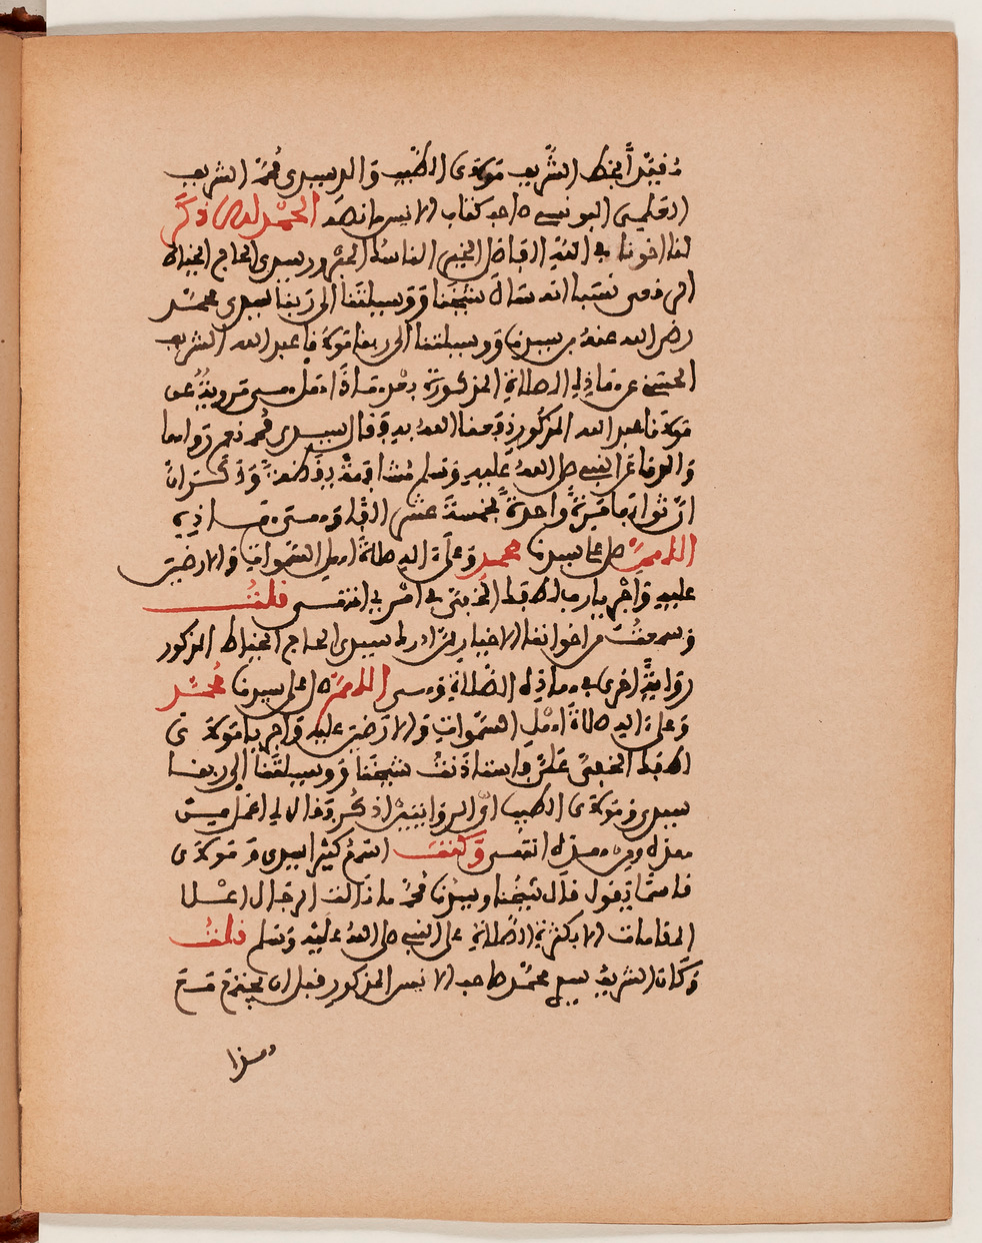 مقيّدًا بخط الشريف مولاي الطيب والد سيدي محمد الشريف
العلمي اليونسي صاحب كتاب الانيس ما نصه الحمد لله ذكر
لنا اخونا في الله الفاضل الخير الناسك المبرور سيدي الحاج الخياط
الر نسبا انه سال شيخنا ووسيلتنا الى ربنا سيدي محمد
رضي الله عنه بن سيدنا ووسيلتنا الى ربنا مولانا عبد الله الشريف
الحسني عن هاذه الصلاة المذكورة بعده هاذا هل هي مروية عن
مولانا عبد الله المذكور نفعنا الله به فقال سيدي محمد نعم رواها
والدنا عن النبي صلى الله عليه وسلم مشافهة يقظة وذكر ان
ان ثوابها مرة واحدة بخمسة عشر الفا وهي هاذه
اللهم صل على سيدنا محمد وعلى اله صلاة اهل السموات والارضين
عليه واجر يا رب لطفك الخفي في امري انتهى قلت
وسمعت من اخواننا الاخيار ان سيدي الحاج الخياط المذكور
رواية اخرى في هاذه الصلاة وهي اللهم صل على سيدنا محمد
وعلى اله صلاة اهل السموات والارضين عليه واجر يا مولاي
لطفك الخفي علي فاستاذنت شيخنا ووسيلتنا الى ربنا
سيدي ومولاي الطيب اي الروايتين اذكر فقال لي اعمل ميت
من هذه ومن هذه انتهى وكنت اسمع كثيرا سيدي ومولاي
قاسما يقول قال شيخنا وسيدنا محمد ما نالت الرجال اعلا
المقامات الا بكثرة الصلاة على النبي صلى الله عليه وسلم قلت
وكان الشريف سيدي محمد صاحب الانيس المذكور قبل ان يجتمع مع
هذا